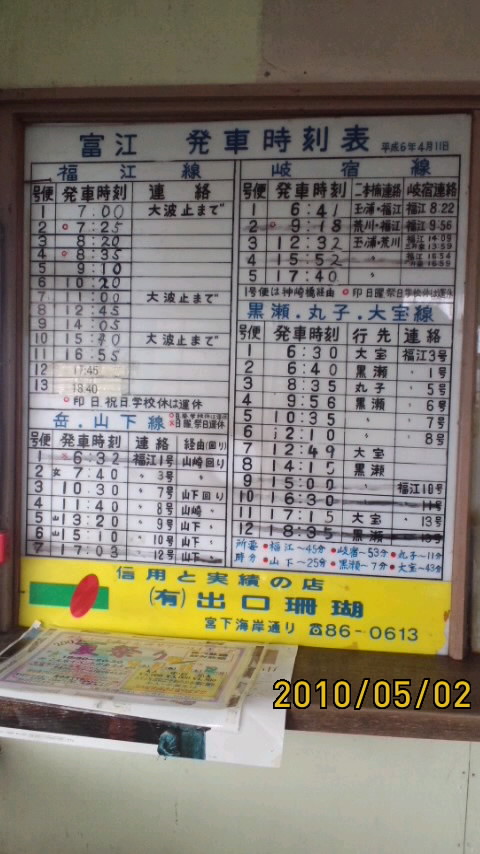 富江 発車時刻表 平成6年4月1日
福江線
号便 発車時刻 連絡
1 7:00 大波止まで
2 7:25
3 8:20
4 8:35
5 9:10
6 10:20
7 11:00 大波止まで
8 12:45
9 14:05
10 15:40 大波止まで
11 16:55
12 17:45
13 18:40
印日、祝日学校休は運休
岳.山下線
号便 発車時刻 連絡 経由(回り)
1 6:32 福江1号 山崎回り
2 7:40 〃3号 〃
3 10:30 〃7号 山下回り
4 11:40 〃8号 山崎〃
5 13:20 〃9号 山下〃
6 15:10 〃10号 山下〃
7 〃12号 山下〃
岐宿線
号便 発車時刻 二本楠連絡 岐宿連絡
1 6:41 玉ノ浦・福江 福江 8:22
2 9:18 荒川・福江 福江 9:56
3 12:32 玉ノ浦・荒川
4 15:52 〃
5 17:40 〃
1号便は神崎橋経由 印日曜祭日学校休は運休
黒瀬.丸子.大宝線
号便 発車時刻 行先 連絡
1 6:30 大宝 福江3号
2 6:40 黒瀬 〃1号
3 8:35 丸子 〃5号
4 9:56 黒瀬 〃6号
5 10:35 〃 〃7号
6 12:10 〃 〃8号
7 12:49 大宝
8 14:15 黒瀬
9 15:00 〃 福江10号
10 16:30 〃 〃11号
11 17:15 大宝 〃13号
12 18:35 黒瀬 〃13号
所要 福江〜45分 岐宿〜53分 丸子〜11分
時分 山下〜25分 黒瀬〜7分 大宝〜43分
信用と実績の店
(有)出口珊瑚
宮下海岸通り ☎86-0613
2010/05/02